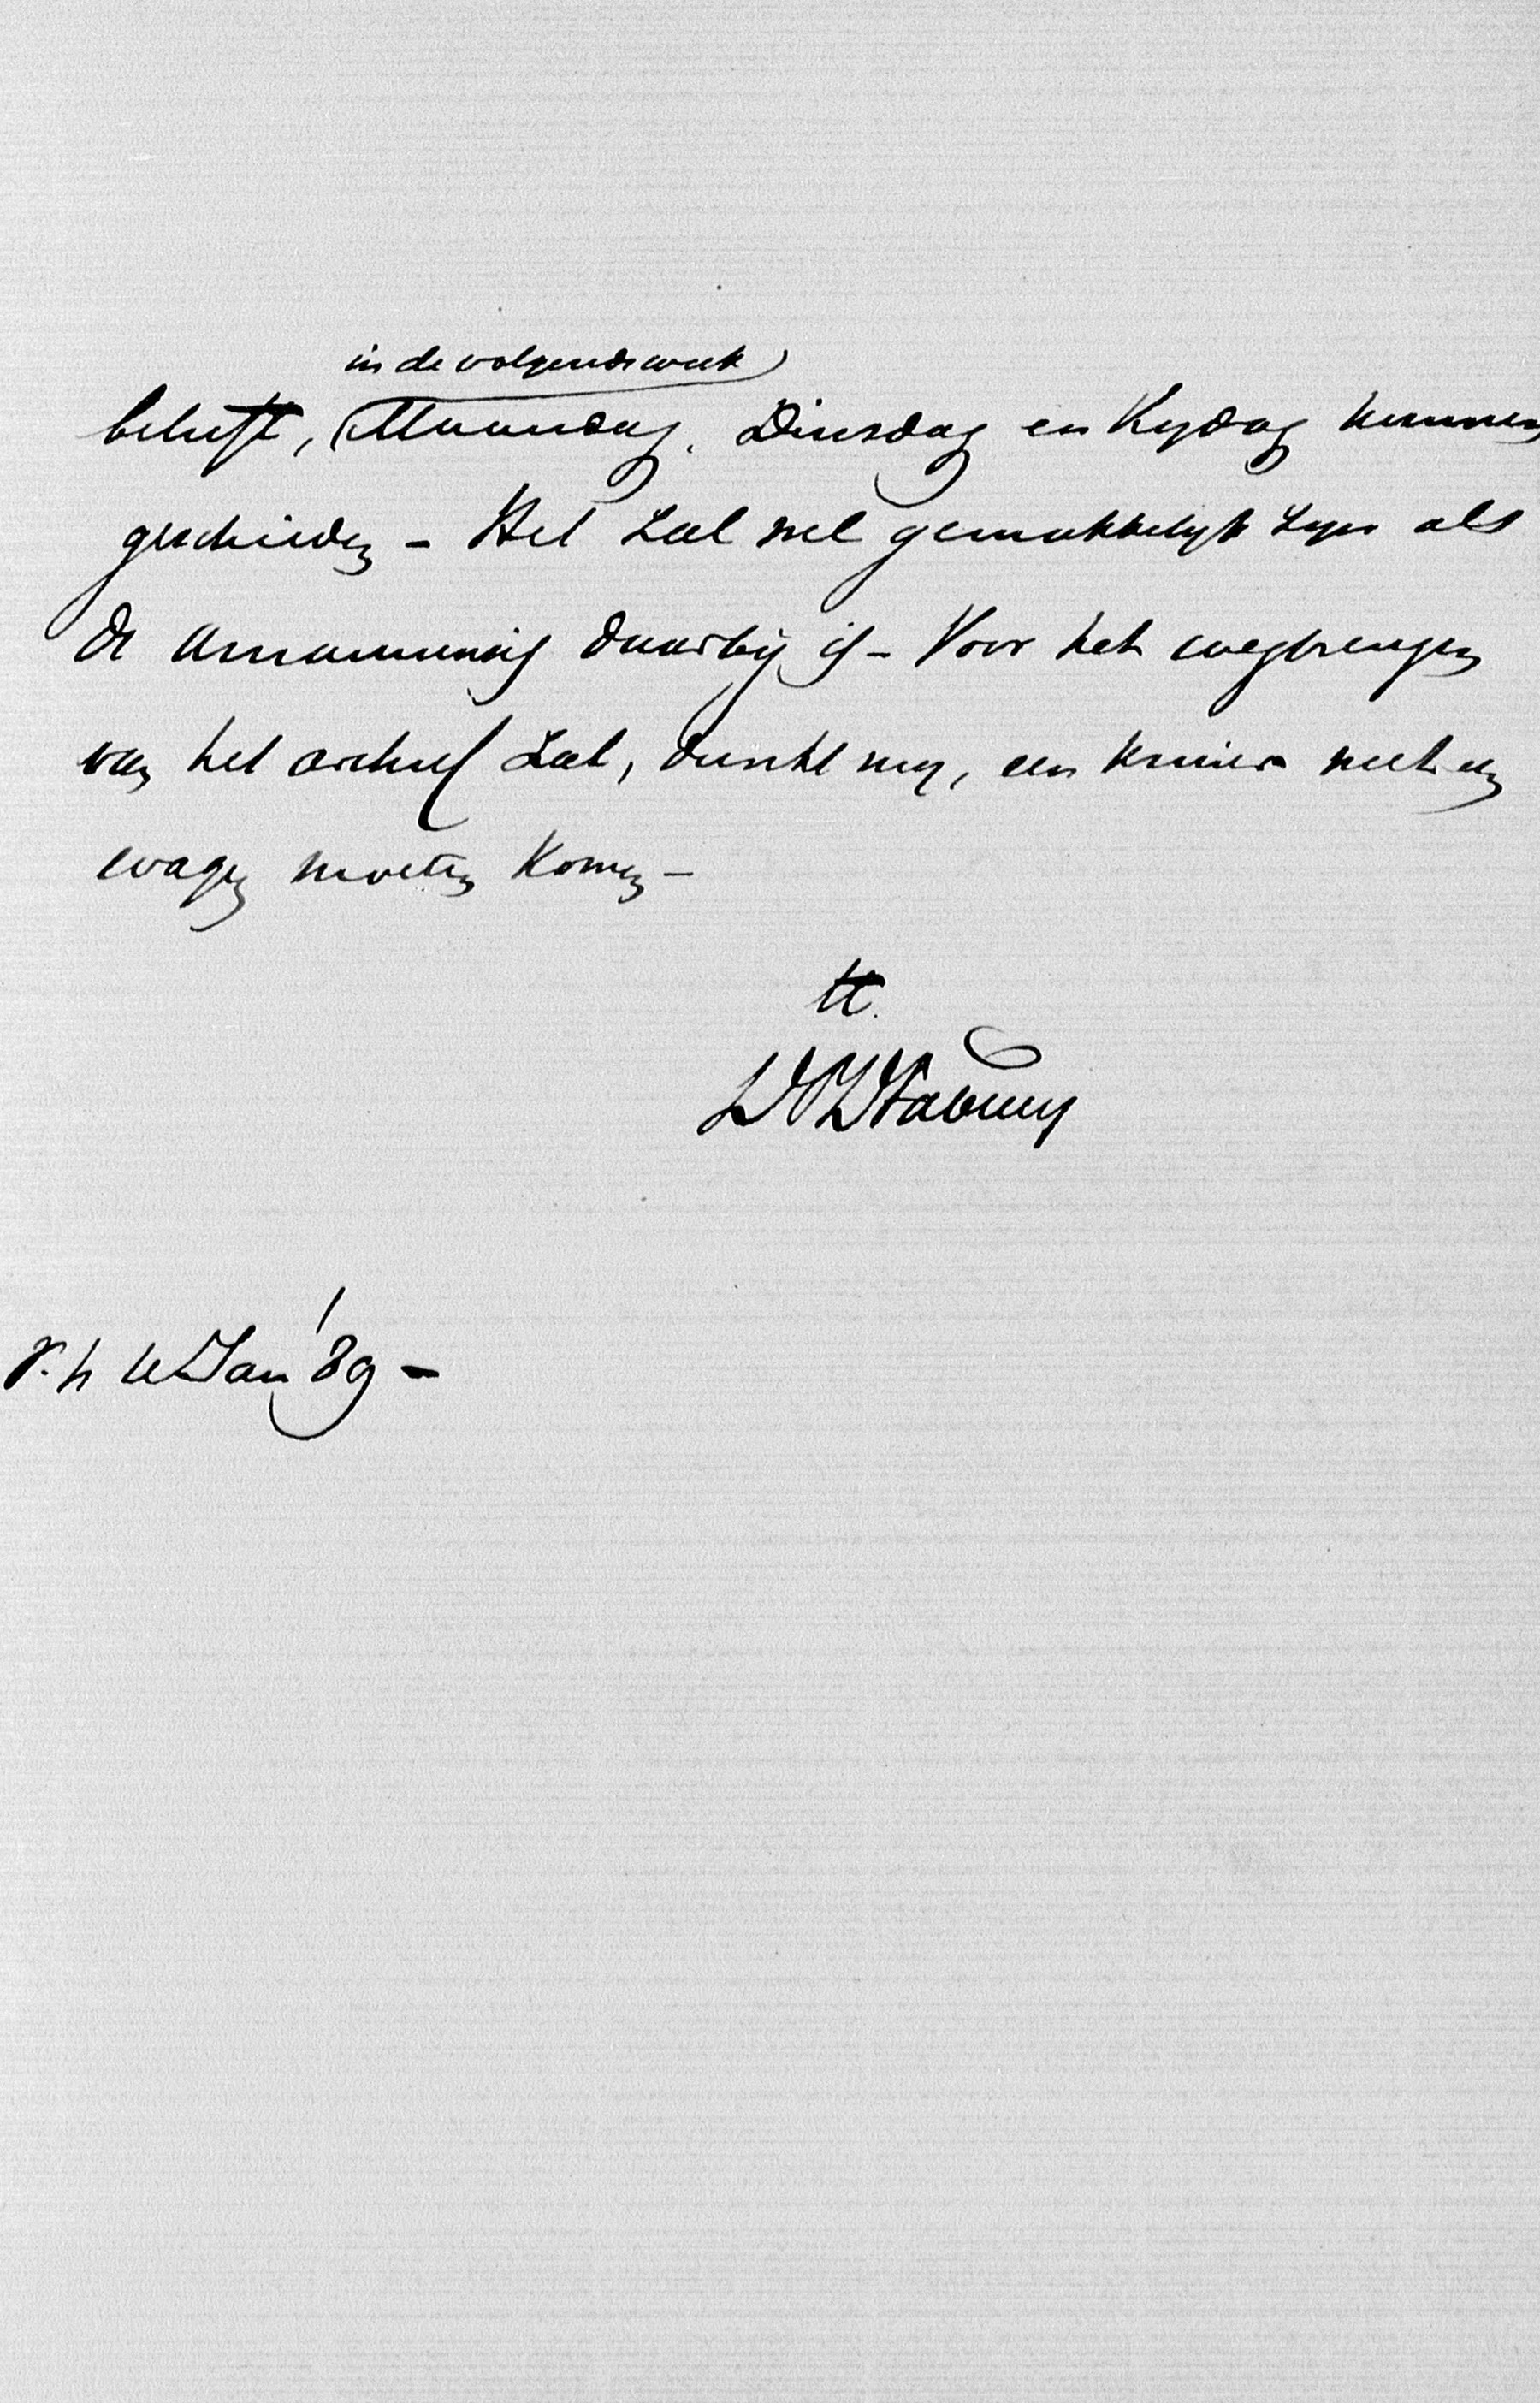 in de volgende week
belieft, Maandag, Dinsdag en Vrydag kunnen
geschieden – Het zal wel gemakkelyk zyn als
de amanuensis daarby is – Voor het wegbrengen
van het archief zal, dunkt my, een kruier met een
wagen moeten komen –
tt.
Jan '89 –